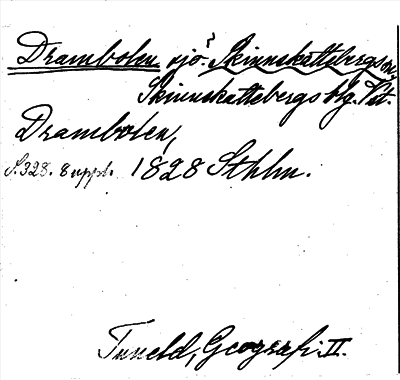 Drambolen sjö. Skinnskattebergs sn,
Skinnskattebergs bg. Vst.
Drambolen,
S. 328. 8 uppl. 1828 Sthlm.
Tuneld, Geografi II.